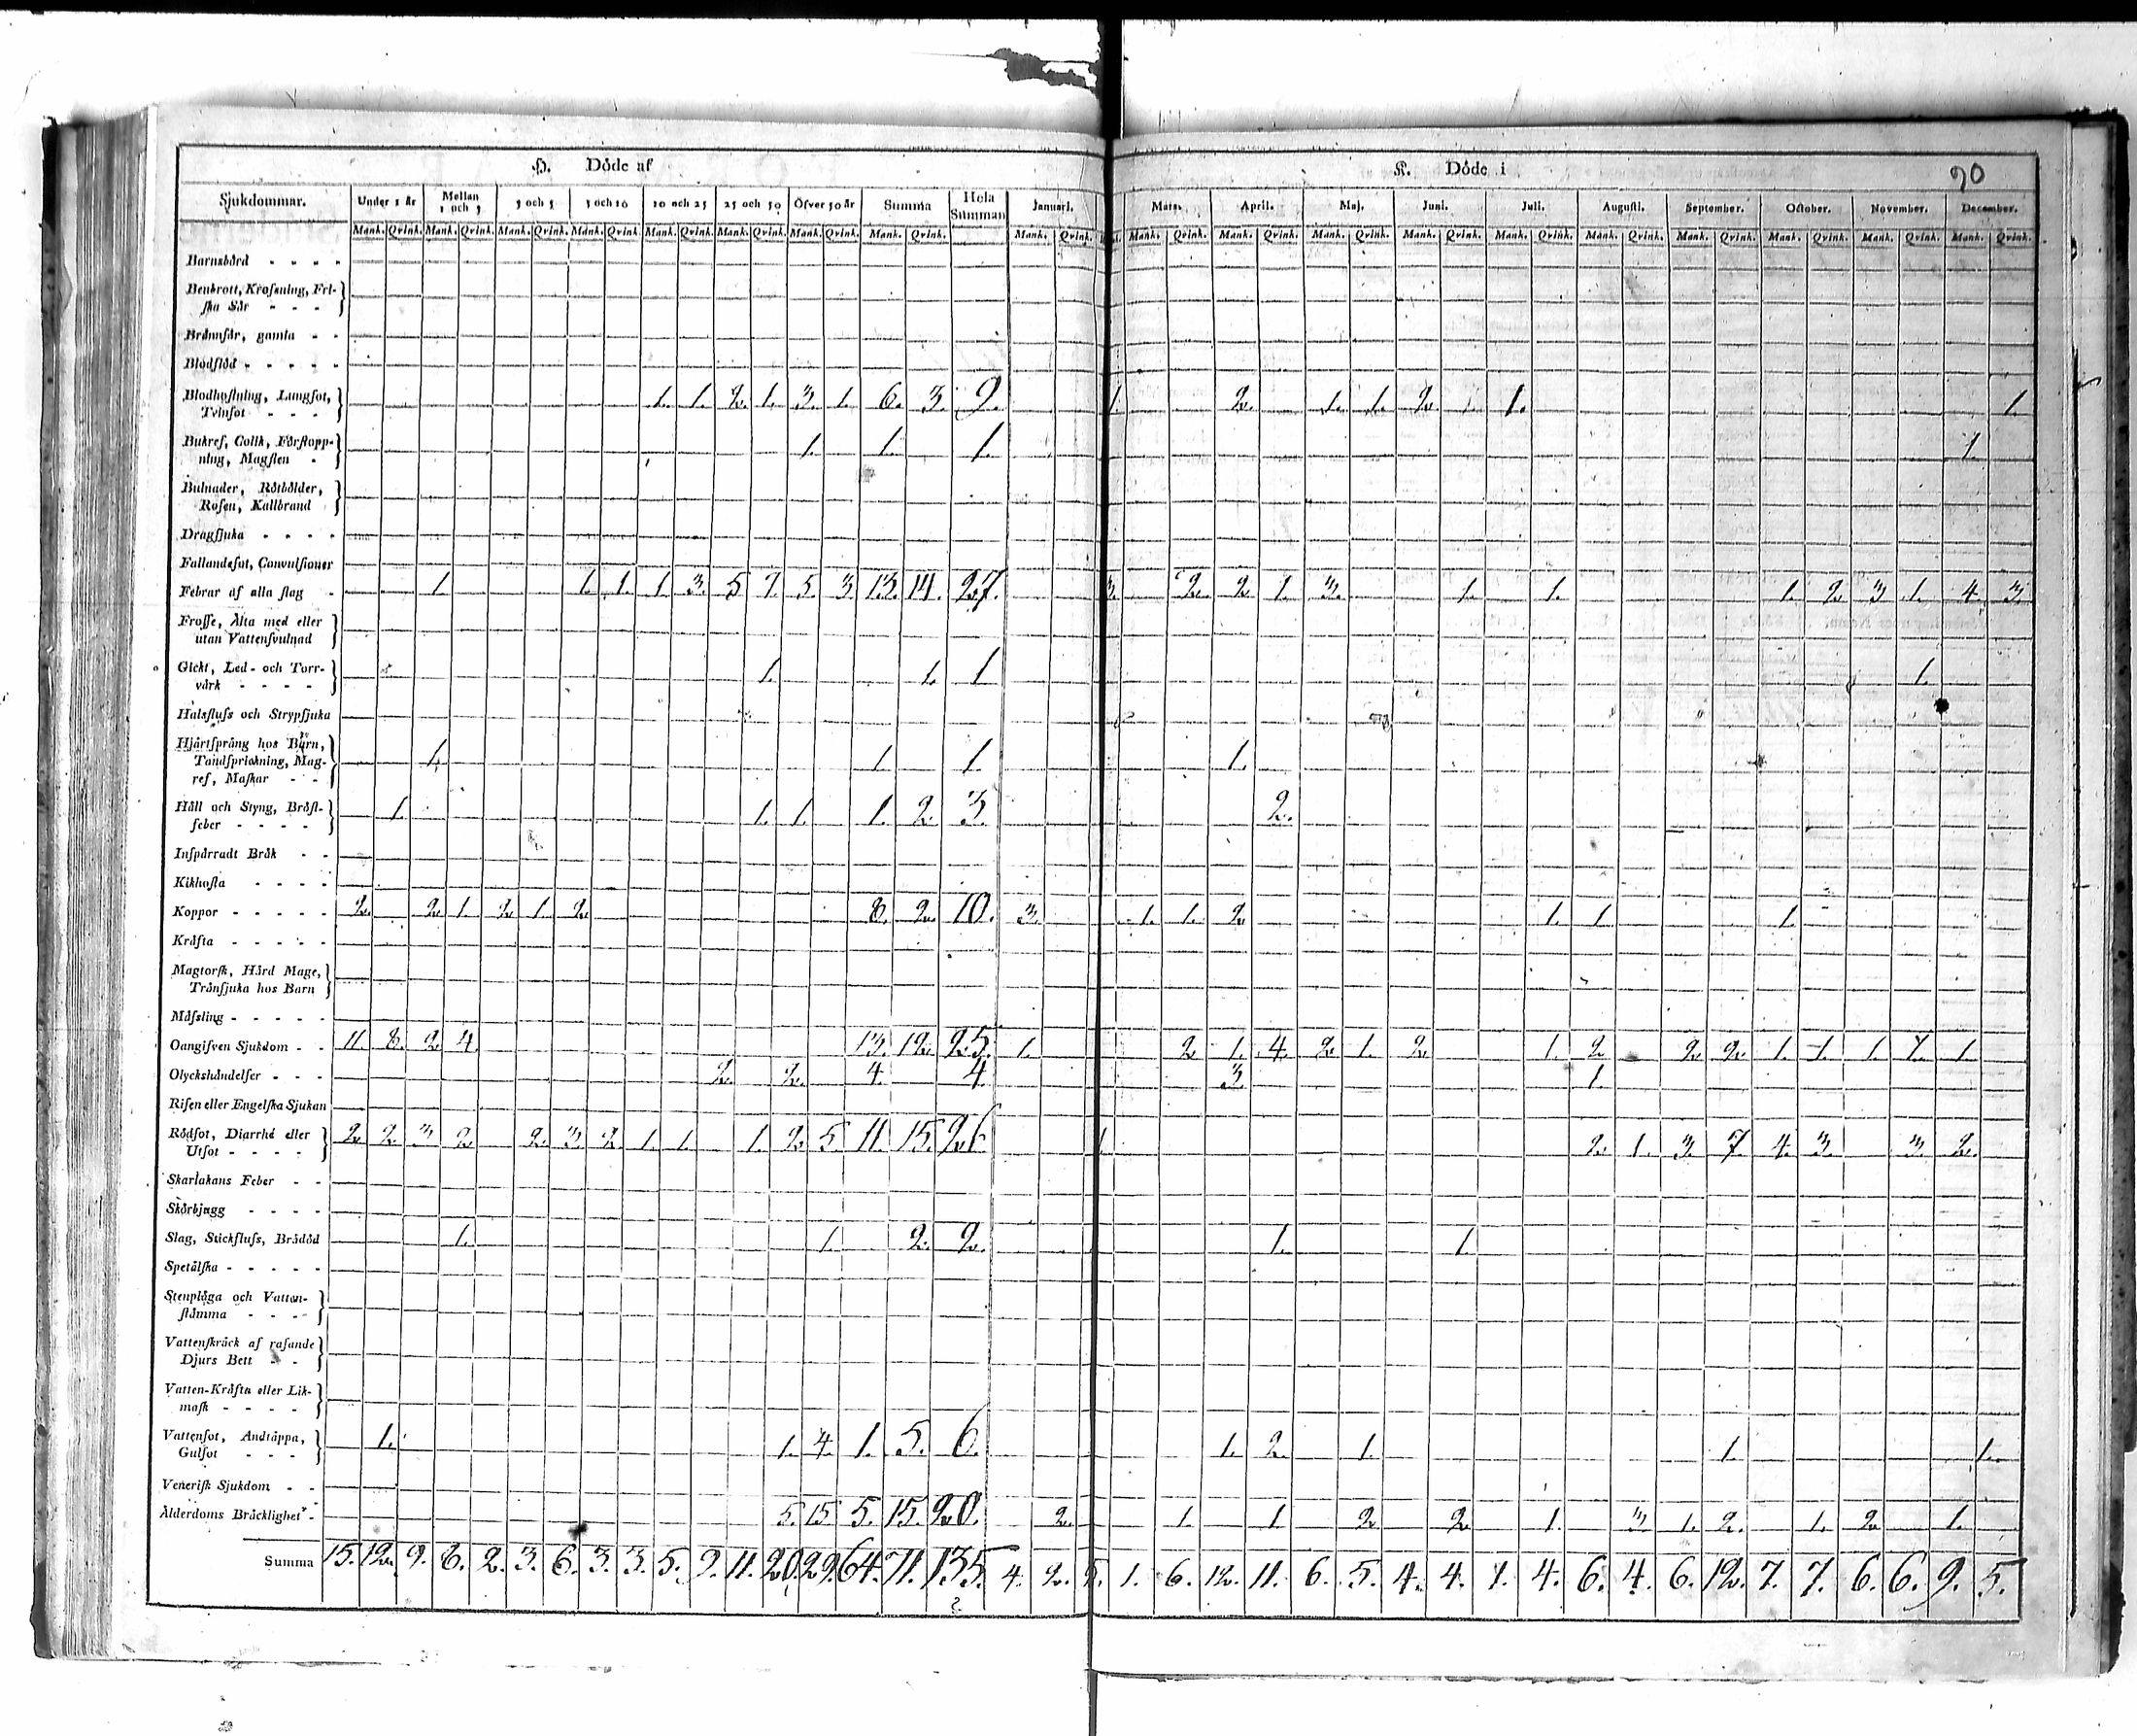 H. Döde af K. Döde i 90
Sjukdommar. Under 1 år Mellan 1 och 3 3 och 5 5 och 10 10 och 25 25 och 50 Öfver 50 år Summa Hela Summan Januari. Mars. April. Maj. Juni. Juli. Augusti. September. October. November. December.
Mank. Qvink. Mank. Qvink. Mank. Qvink. Mank. Qvink. Mank. Qvink. Mank. Qvink. Mank. Qvink. Mank. Qvink. Mank. Qvink. Mank. Qvink. Mank. Qvink. Mank. Qvink. Mank. Qvink. Mank. Qvink. Mank. Qvink. Mank. Qvink. Mank. Qvink. Mank. Qvink. Mank. Qvink.
Barnsbörd - - - -
Benbrott, Krossning, Fri-
ska Sår - - -
Brännsår, gamla - -
Blodflöd - - - - -
Blodhostning, Lungsot,
Trinsot - - - 1. 1. 2. 1. 3. 1. 6. 3. 9. 1. 2. 1. 1. 2. 1. 1.
Bukref, Colik, Förstopp-
ning, Magsten - 1. 1. 1. 1.
Bulnader, Rötbölder,
Rosen, Kallbrand
Dragsjuka - - - -
Fallandesot, Convulsioner
Febrar af alla slag - 1. 1. 1. 1 3. 5 7. 5. 3 13. 14. 27. 3. 2. 2. 1. 3. 1. 1. 1. 2. 3 1. 4. 3
Frosse, Älta med eller
utan Vattensvulnad
Gickt, Led- och Torr-
värk - - - - 1. 1. 1 1.
Halsfluss och Strypsjuka
Hjärtsprång hos Barn,
Tandsprickning, Mag-
ref, Maskar - - 1. 1. 1. 1.
Håll och Styng, Bröst-
feber - - - - 1. 1. 1. 1. 2. 3. 2.
Inspärradt Bråk - -
Kikhosta - - - -
Koppor - - - - - 2. 2 1. 2 1. 2 8. 2. 10. 3. 1. 1. 2 1. 1 1.
Kräfta - - - - -
Magtorsk, Hård Mage,
Tränsjuka hos Barn
Mässling - - - - -
Oangifven Sjukdom - - 11. 8. 2 4. 13. 12. 25. 1. 2 1. 4. 2 1. 2 1. 2 2 2. 1. 1. 1. 1. 1.
Olyckshändelser - - - 2. 2. 4. 4 3 1.
Risen eller Engelska Sjukan
Rödsot, Diarrhé eller
Utsot - - - - 2 2. 3 2. 2. 3. 2 1. 1. 1. 2. 5. 11. 15. 26. 1 2. 1. 3. 7. 4. 3. 3. 2.
Skarlakans Feber - -
Skörbjugg - - - -
Slag, Stickfluss, Brådöd 1. 1. 2. 2. 1. 1
Spetälska - - - - -
Stenplåga och Vatten-
stämma - - - -
Vattenskräck af rasande
Djurs Bett - -
Vatten-Kräfta eller Lik-
mask - - - -
Vattensot, Andtäppa,
Gulsot - - - 1. 1. 4. 1. 5. 6. 1. 2. 1 1. 1.
Venerisk Sjukdom - -
Ålderdoms Bräcklighet - 5. 15 5. 15. 20. 2. 1. 1. 2 2 1. 3 1. 2. 1. 2 1.
Summa 15. 12. 9. 8. 2. 3. 6. 3. 3. 5. 9. 11. 20. 29. 64. 71. 135. 4. 2. 5. 1. 6. 12. 11. 6. 5. 4. 4. 1. 4. 6. 4. 6. 12. 7. 7. 6. 6. 9. 5.